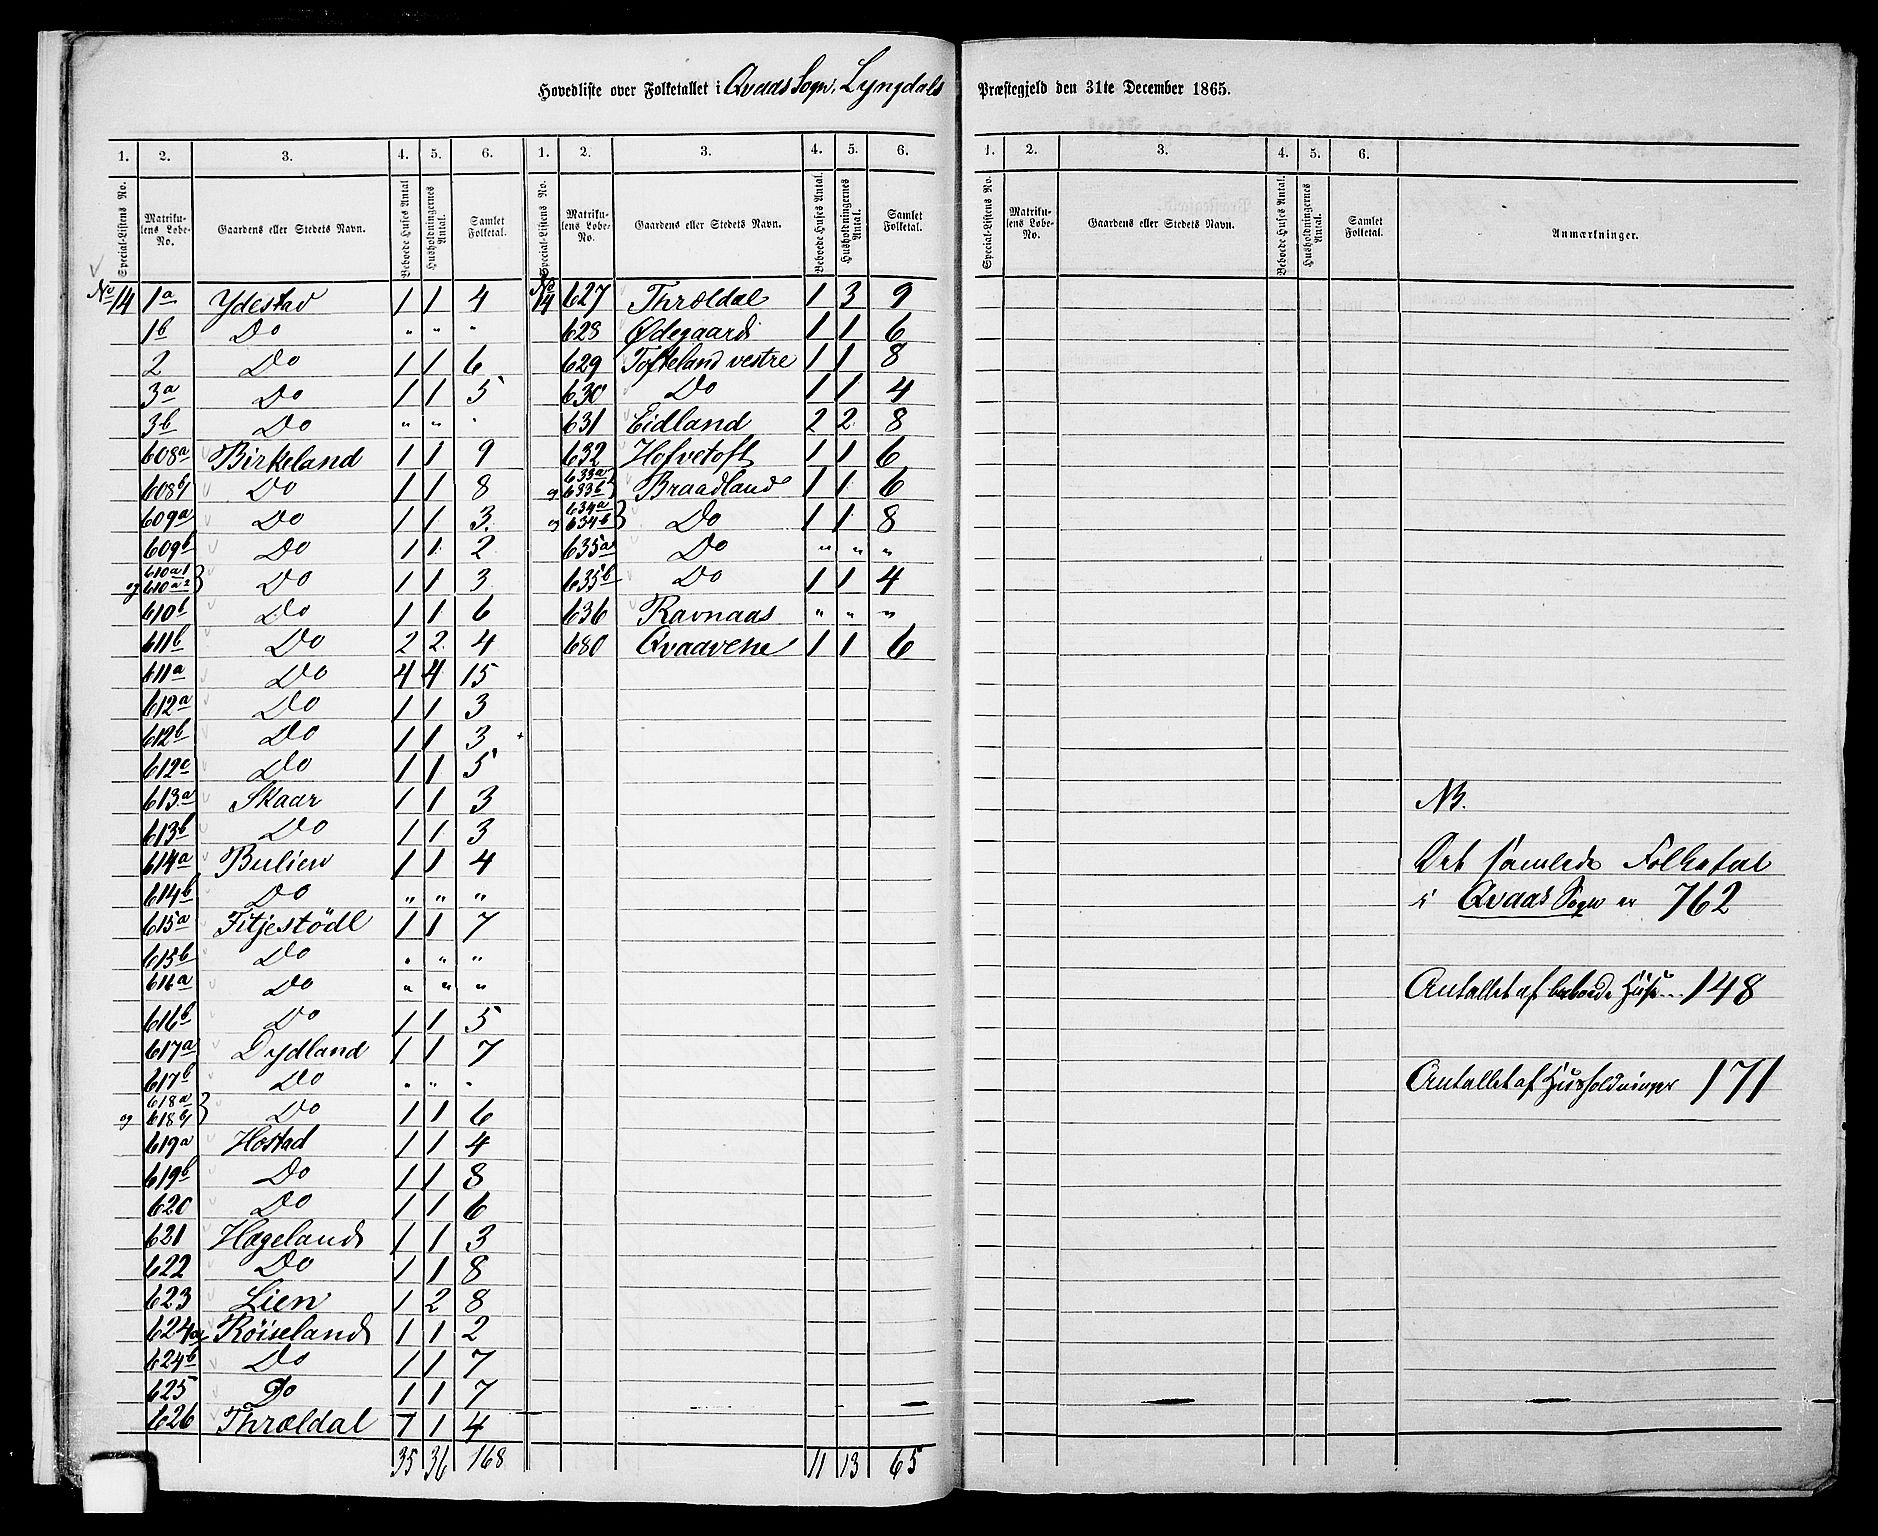 Hovedliste over Folketallet i Qvaas Sogn, Lyngdals Præstegjeld den 31te December 1865.
1. 2. 3. 4. 5. 6. 1. 2. 3. 4. 5. 6.
Special-Listens No. Matrikulens Løbe-No. Gaardens eller Stedets Navn. Beboede Huses Antal. Husholdningernes Antal. Samlet Folketal. Special-Listens No. Matrikulens Løbe-No. Gaardens eller Stedets Navn. Beboede Huses Antal. Husholdningernes Antal. Samlet Folketal.
No 14 1a Ydestad 1 1 4
1b Do " " "
2 Do 1 1 6
3a Do 1 1 5
3b Do " " "
608a Birkeland 1 1 9
608b Do 1 1 8
609a Do 1 1 3.
609b Do 1 1 2
610a1 og 610a2 } Do 1 1 3
610b Do 1 1 6
611b Do 2 2. 4
611a Do 4 4 15
612a Do 1 1 3
612b Do 1 1 3
612c Do 1 1 5
613a Skaar 1 1 3
613b Do 1 1 3
614a Bulien 1 1 4
614b Do " " "
615a Fitjestödl 1 1 7
615b Do " " "
616a Do " " "
616b Do 1 1 5
617a Dydland 1 1 7
617b Do " " "
618a og 618b } Do 1 1 6
619a Hostad 1 1 4
619b Do 1 1 8
620 Do 1 1 6
621 Hægeland 1 1 3
622 Do 1 1 8
623 Lien 1 2 8
624a Röiseland 1 1 2
624b Do 1 1 7
625 Do 1 1 7
626 Thrældal 1 1 4
35 36 168
No 14 627 Thrældal 1 3 9
628 Ødegaard 1 1 6
629 Tofteland vestre 1 1 8
630 Do 1 1 4
631 Eidland 2 2 8
632 Hofvetoft 1 1 6
633a og 633b } Braadland 1 1 6
634a og 634b } Do 1 1 8
635a Do " " "
635b Do 1 1 4
636 Ravnaas " " "
680 Qvaavene 1 1 6
11 13 65
1. 2. 3. 4. 5. 6.
Special-Listens No. Matrikulens Løbe-No. Gaardens eller Stedets Navn. Beboede Huses Antal. Husholdningernes Antal. Samlet Folketal. Anmærkninger.
NB.
Det samlede Folketal
i Qvaas Sogn er 762
Antallet af beboede Huse 148
Antallet af Husholdninger 171